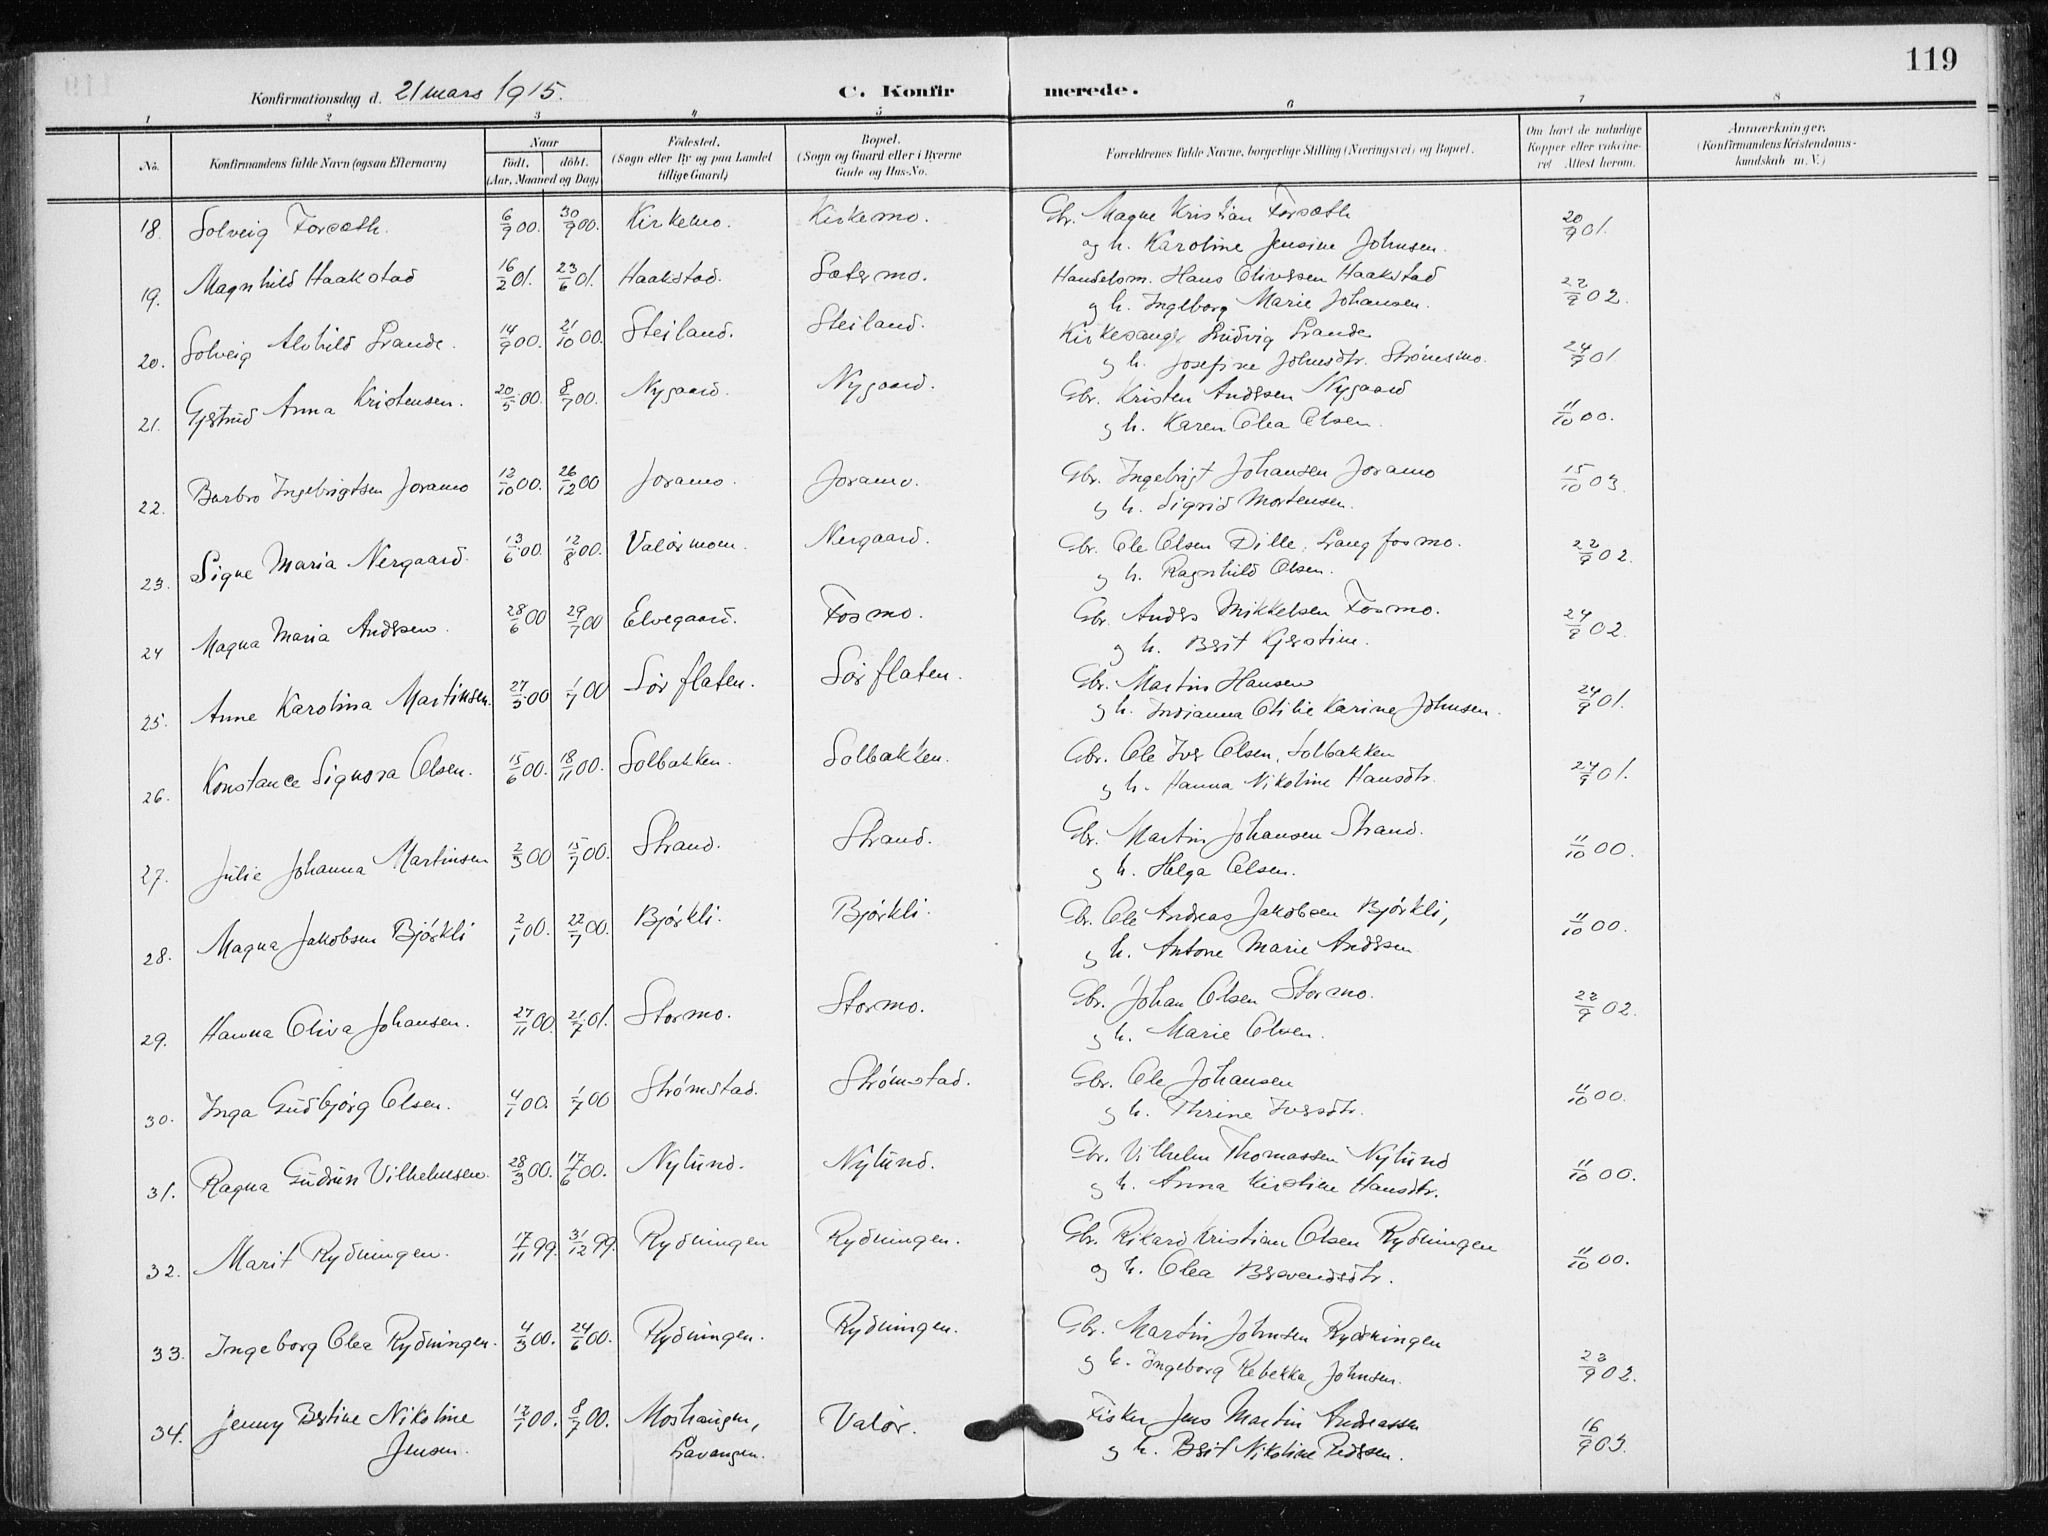 119
Konfirmationsdag d. 21 mars 1915.
C. Konfirmerede.
1 2 3 4 5 6 7 8
No. Konfirmandens fulde Navn (ogsaa Efternavn) Naar født, døbt. (Aar, Maaned og Dag) Fødested. (Sogn eller By og paa Landet tillige Gaard) Bopæl. (Sogn og Gaard eller i Byerne Gade og Hus-No. Forældrenes fulde Navne, borgerlige Stilling (Næringsvei) og Bopæl. Om havt de naturlige Kopper eller vakcineret. Attest herom. Anmærkninger. (Konfirmandens Kristendomskundskab m. V.)
18. Solveig Forsæth. 6/9 00. 30/9 00. Kirkemo. Kirkemo. Gbr. Magne Kristian Forsæth 20/9 01.
og h. Karoline Jensine Johnsen.
19. Magnhild Haakstad 16/2 01. 23/6 01. Haakstad. Sætermo. Handelsm. Hans Oliversen Haakstad 22/9 02.
og h. Ingeborg Marie Johansen.
20. Solveig Alvhild Grande. 14/9 00. 21/10 00. Steiland. Steiland. Kirkesangr. Ludvig Grande 24/9 01
og h. Josefine Johnsdtr. Strømsmo.
21. Gjertrud Anna Kristensen. 20/5 00. 8/7 00. Nygaard. Nygaard. Gbr. Kristen Andersen Nygaard 11/10 00.
og h. Karen Olea Olsen.
22. Barbro Ingebrigtsen Joramo 12/10 00. 26/12 00 Joramo. Joramo. Gbr. Ingebrigt Johansen Joramo 15/10 03.
og h. Sigrid Mortensen.
23. Signe Maria Nergaard. 13/6 00. 12/8 00. Valørmoen. Nergaard. Gbr. Ole Olsen Dille, Langfosmo. 22/9 02.
og h. Ragnhild Olsen.
24 Magna Maria Andersen. 28/6 00 29/7 00 Elvegaard. Fosmo. Gbr. Anders Mikkelsen Fosmo. 24/9 02.
og h. Berit Kjerstine.
25. Anne Karolina Martinsen. 27/5 00 1/7 00 Sørflaten. Sørflaten. Gbr. Martin Hansen 24/9 01.
og h. Indianna Otilie Karine Johnsen.
26. Konstance Signora Olsen. 15/6 00. 18/11 00. Solbakken. Solbakken. Gbr. Ole Iver Olsen, Solbakken 24/9 01.
og h. Hanna Nikoline Hansdtr.
27. Julie Johanna Martinsen 2/3 00 15/7 00. Strand. Strand. Gbr. Martin Johansen Strand. 11/10 00.
og h. Helga Olsen.
28. Magna Jakobsen Bjørkli 2/1 00. 22/7 00. Bjørkli. Bjørkli. Gbr. Ole Andreas Jakobsen Bjørkli, 11/10 00.
og h. Antone Marie Andersen
29. Hanna Oliva Johansen. 27/11 00. 21/7 01. Stormo. Stormo. Gbr. Johan Olsen Stormo. 22/9 02.
og h. Marie Olsen.
30. Inga Gudbjørg Olsen. 4/1 00. 1/7 00 Strømstad. Strømstad. Gbr. Ole Johansen 11/10 00.
og h. Thrine Iversdtr.
31. Ragna Gudrun Vilhelmsen. 28/3 00. 17/6 00. Nylund. Nylund. Gbr. Vilhelm Thomassen Nylund 11/10 00.
og h. Anna Kirstine Hansdtr.
32. Marit Rydningen. 17/11 99. 31/12 99. Rydningen Rydningen. Gbr. Rikard Kristian Olsen Rydningen 11/10 00.
og h. Olea Berendsdtr.
33. Ingeborg Olea Rydningen. 4/3 00. 24/6 00. Rydningen. Rydningen. Gbr. Martin Johnsen Rydningen
og h. Ingeborg Rebekka Johnsen. 22/9 02.
34. Jenny Bertine Nikoline 12/1 00. 8/7 00. Moshaugen, Valør. Fisker Jens Martin Andreassen 16/9 03.
Jensen. Lavangen. og h. Berit Nikoline Pedersen.